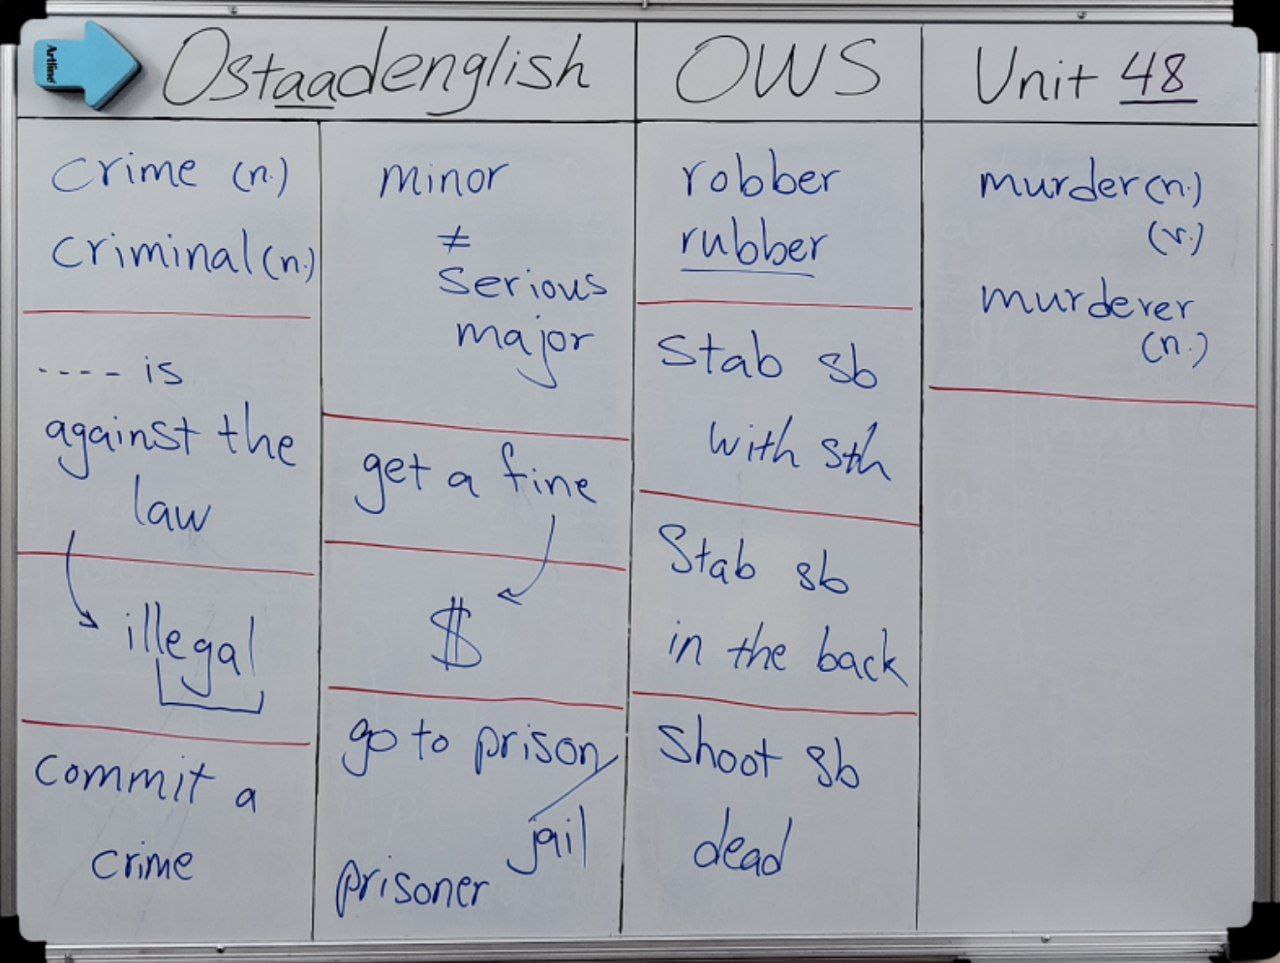 Artline
Ostaadenglish
OWS
Unit 48
crime (n.)
criminal (n.)
---- is
against the
law
illegal
commit a
crime
minor
≠
serious
major
get a fine
$
go to prison/
jail
prisoner
robber
rubber
Stab sb
with sth
Stab sb
in the back
Shoot sb
dead
murder (n.)
(v.)
murderer
(n.)